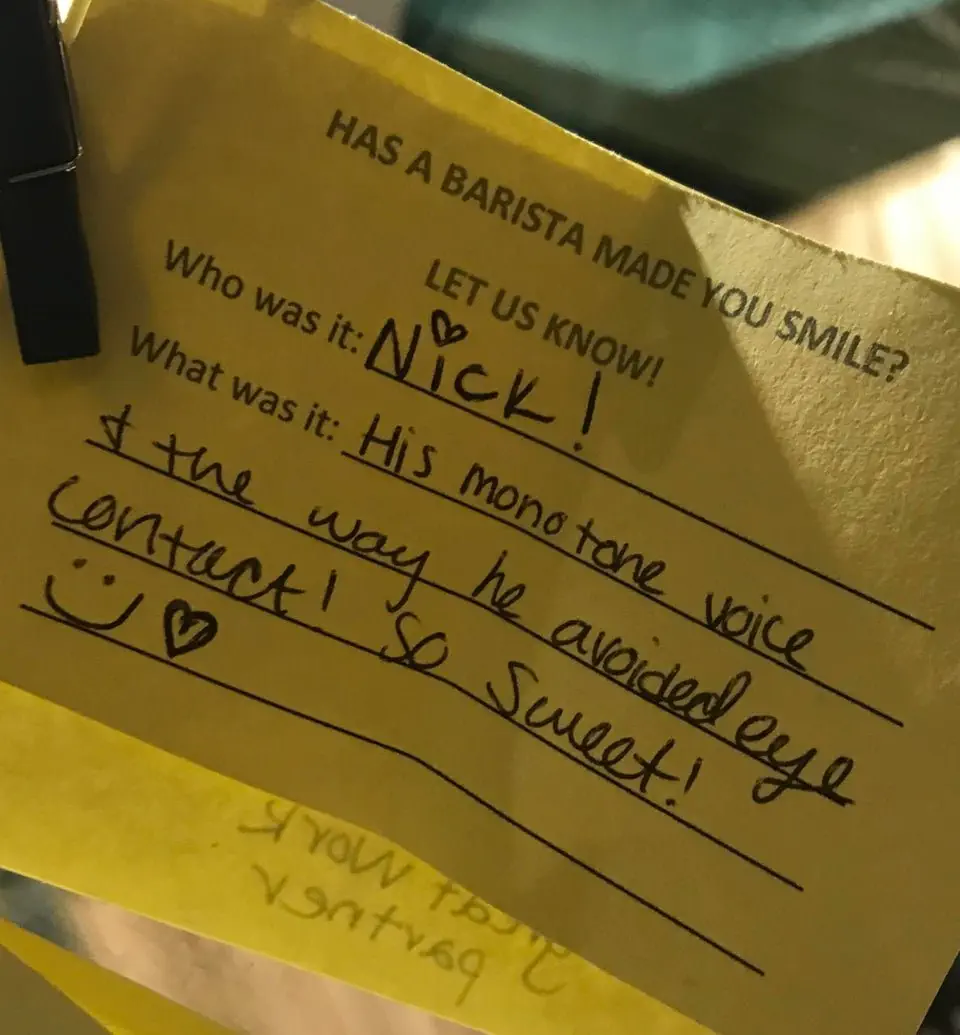 HAS A BARISTA MADE YOU SMILE?
LET US KNOW!
Who was it: Nick!
What was it: His monotone voice
& the way he avoided eye
contact! So sweet!
great work
partner